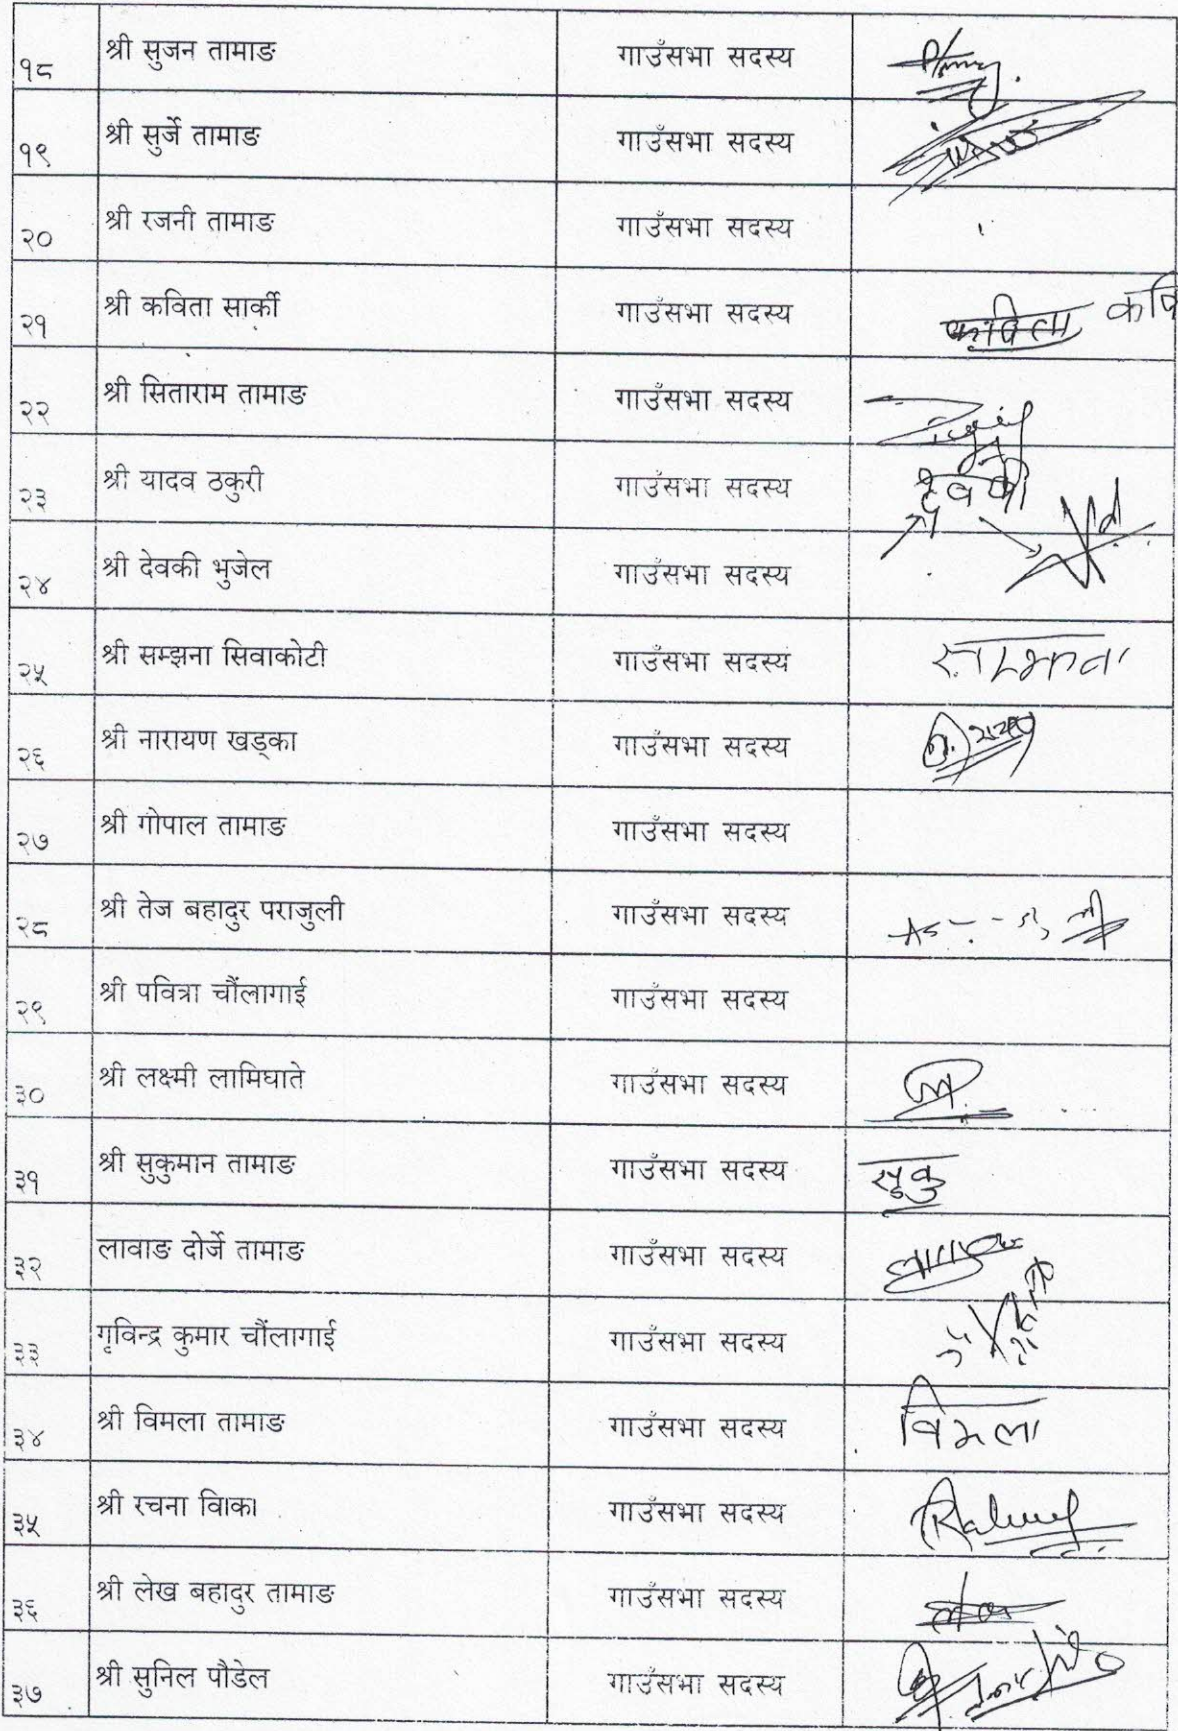 १८ श्री सुजन तामाङ गाउँसभा सदस्य
१९ श्री सुर्जे तामाङ गाउँसभा सदस्य
२० श्री रजनी तामाङ गाउँसभा सदस्य
२१ श्री कविता सार्की गाउँसभा सदस्य कविता कवि
२२ श्री सिताराम तामाङ गाउँसभा सदस्य
२३ श्री यादव ठकुरी गाउँसभा सदस्य देवकी
२४ श्री देवकी भुजेल गाउँसभा सदस्य
२५ श्री सम्झना सिवाकोटी गाउँसभा सदस्य
२६ श्री नारायण खड्का गाउँसभा सदस्य
२७ श्री गोपाल तामाङ गाउँसभा सदस्य
२८ श्री तेज बहादुर पराजुली गाउँसभा सदस्य
२९ श्री पवित्रा चौंलागाई गाउँसभा सदस्य
३० श्री लक्ष्मी लामिघाते गाउँसभा सदस्य
३१ श्री सुकुमान तामाङ गाउँसभा सदस्य सुकु
३२ लावाङ दोर्जे तामाङ गाउँसभा सदस्य
३३ गृविन्द्र कुमार चौंलागाई गाउँसभा सदस्य
३४ श्री विमला तामाङ गाउँसभा सदस्य विमला
३५ श्री रचना विाका गाउँसभा सदस्य
३६ श्री लेख बहादुर तामाङ गाउँसभा सदस्य
३७ श्री सुनिल पौडेल गाउँसभा सदस्य